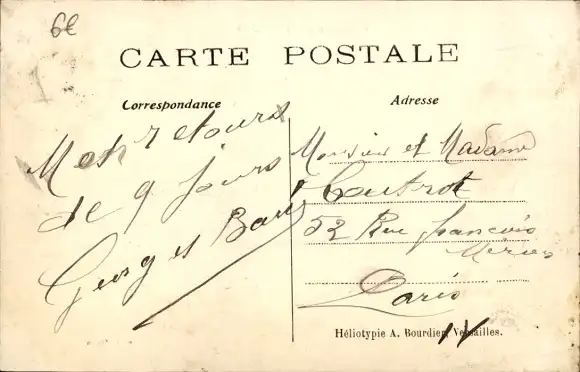 6€
CARTE POSTALE
Correspondance
Adresse
Mon retour
de 9 jours
Georges
Monsieur et Madame
Coutrot
52 Rue francois
Paris
Héliotypie A. Bourdier, Versailles.